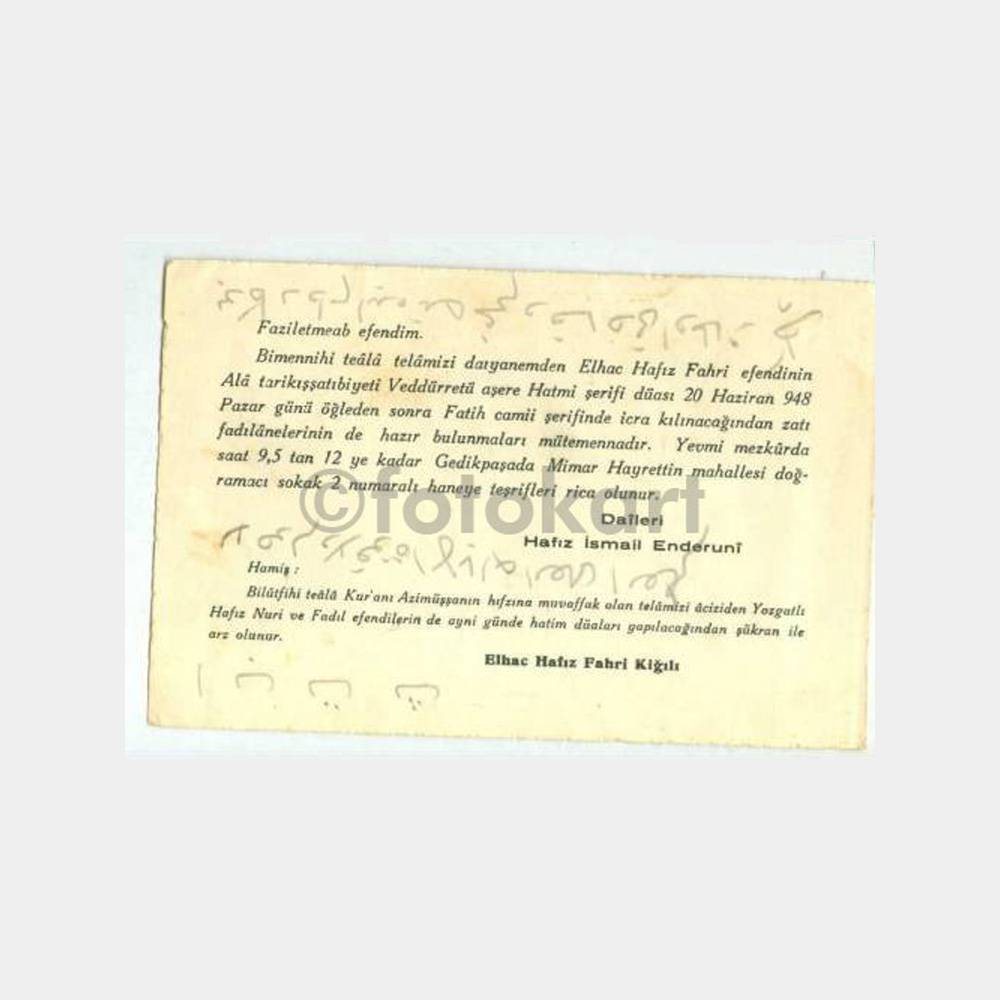 Faziletmeab efendim.
Bimennihi teâlâ telâmizi daıyanemden Elhac Hafız Fahri efendinin
Alâ tarikışşatıbiyeti Veddürretü aşere Hatmi şerifi düası 20 Haziran 948
Pazar günü öğleden sonra Fatih camii şerifinde icra kılınacağından zatı
fadılânelerinin de hazır bulunmaları mütemennadır. Yevmi mezkûrda
saat 9,5 tan 12 ye kadar Gedikpaşada Mimar Hayrettin mahallesi doğ-
ramacı sokak 2 numaralı haneye teşrifleri rica olunur.
©fotokart
Daîleri
Hafız İsmail Enderunî
Hamiş :
Bilûtfihi teâlâ Kur'anı Azimüşşanın hıfzına muvaffak olan telâmizi âciziden Yozgatlı
Hafız Nuri ve Fadıl efendilerin de ayni günde hatim düaları yapılacağından şükran ile
arz olunur.
Elhac Hafız Fahri Kiğılı
ا ب ت ث